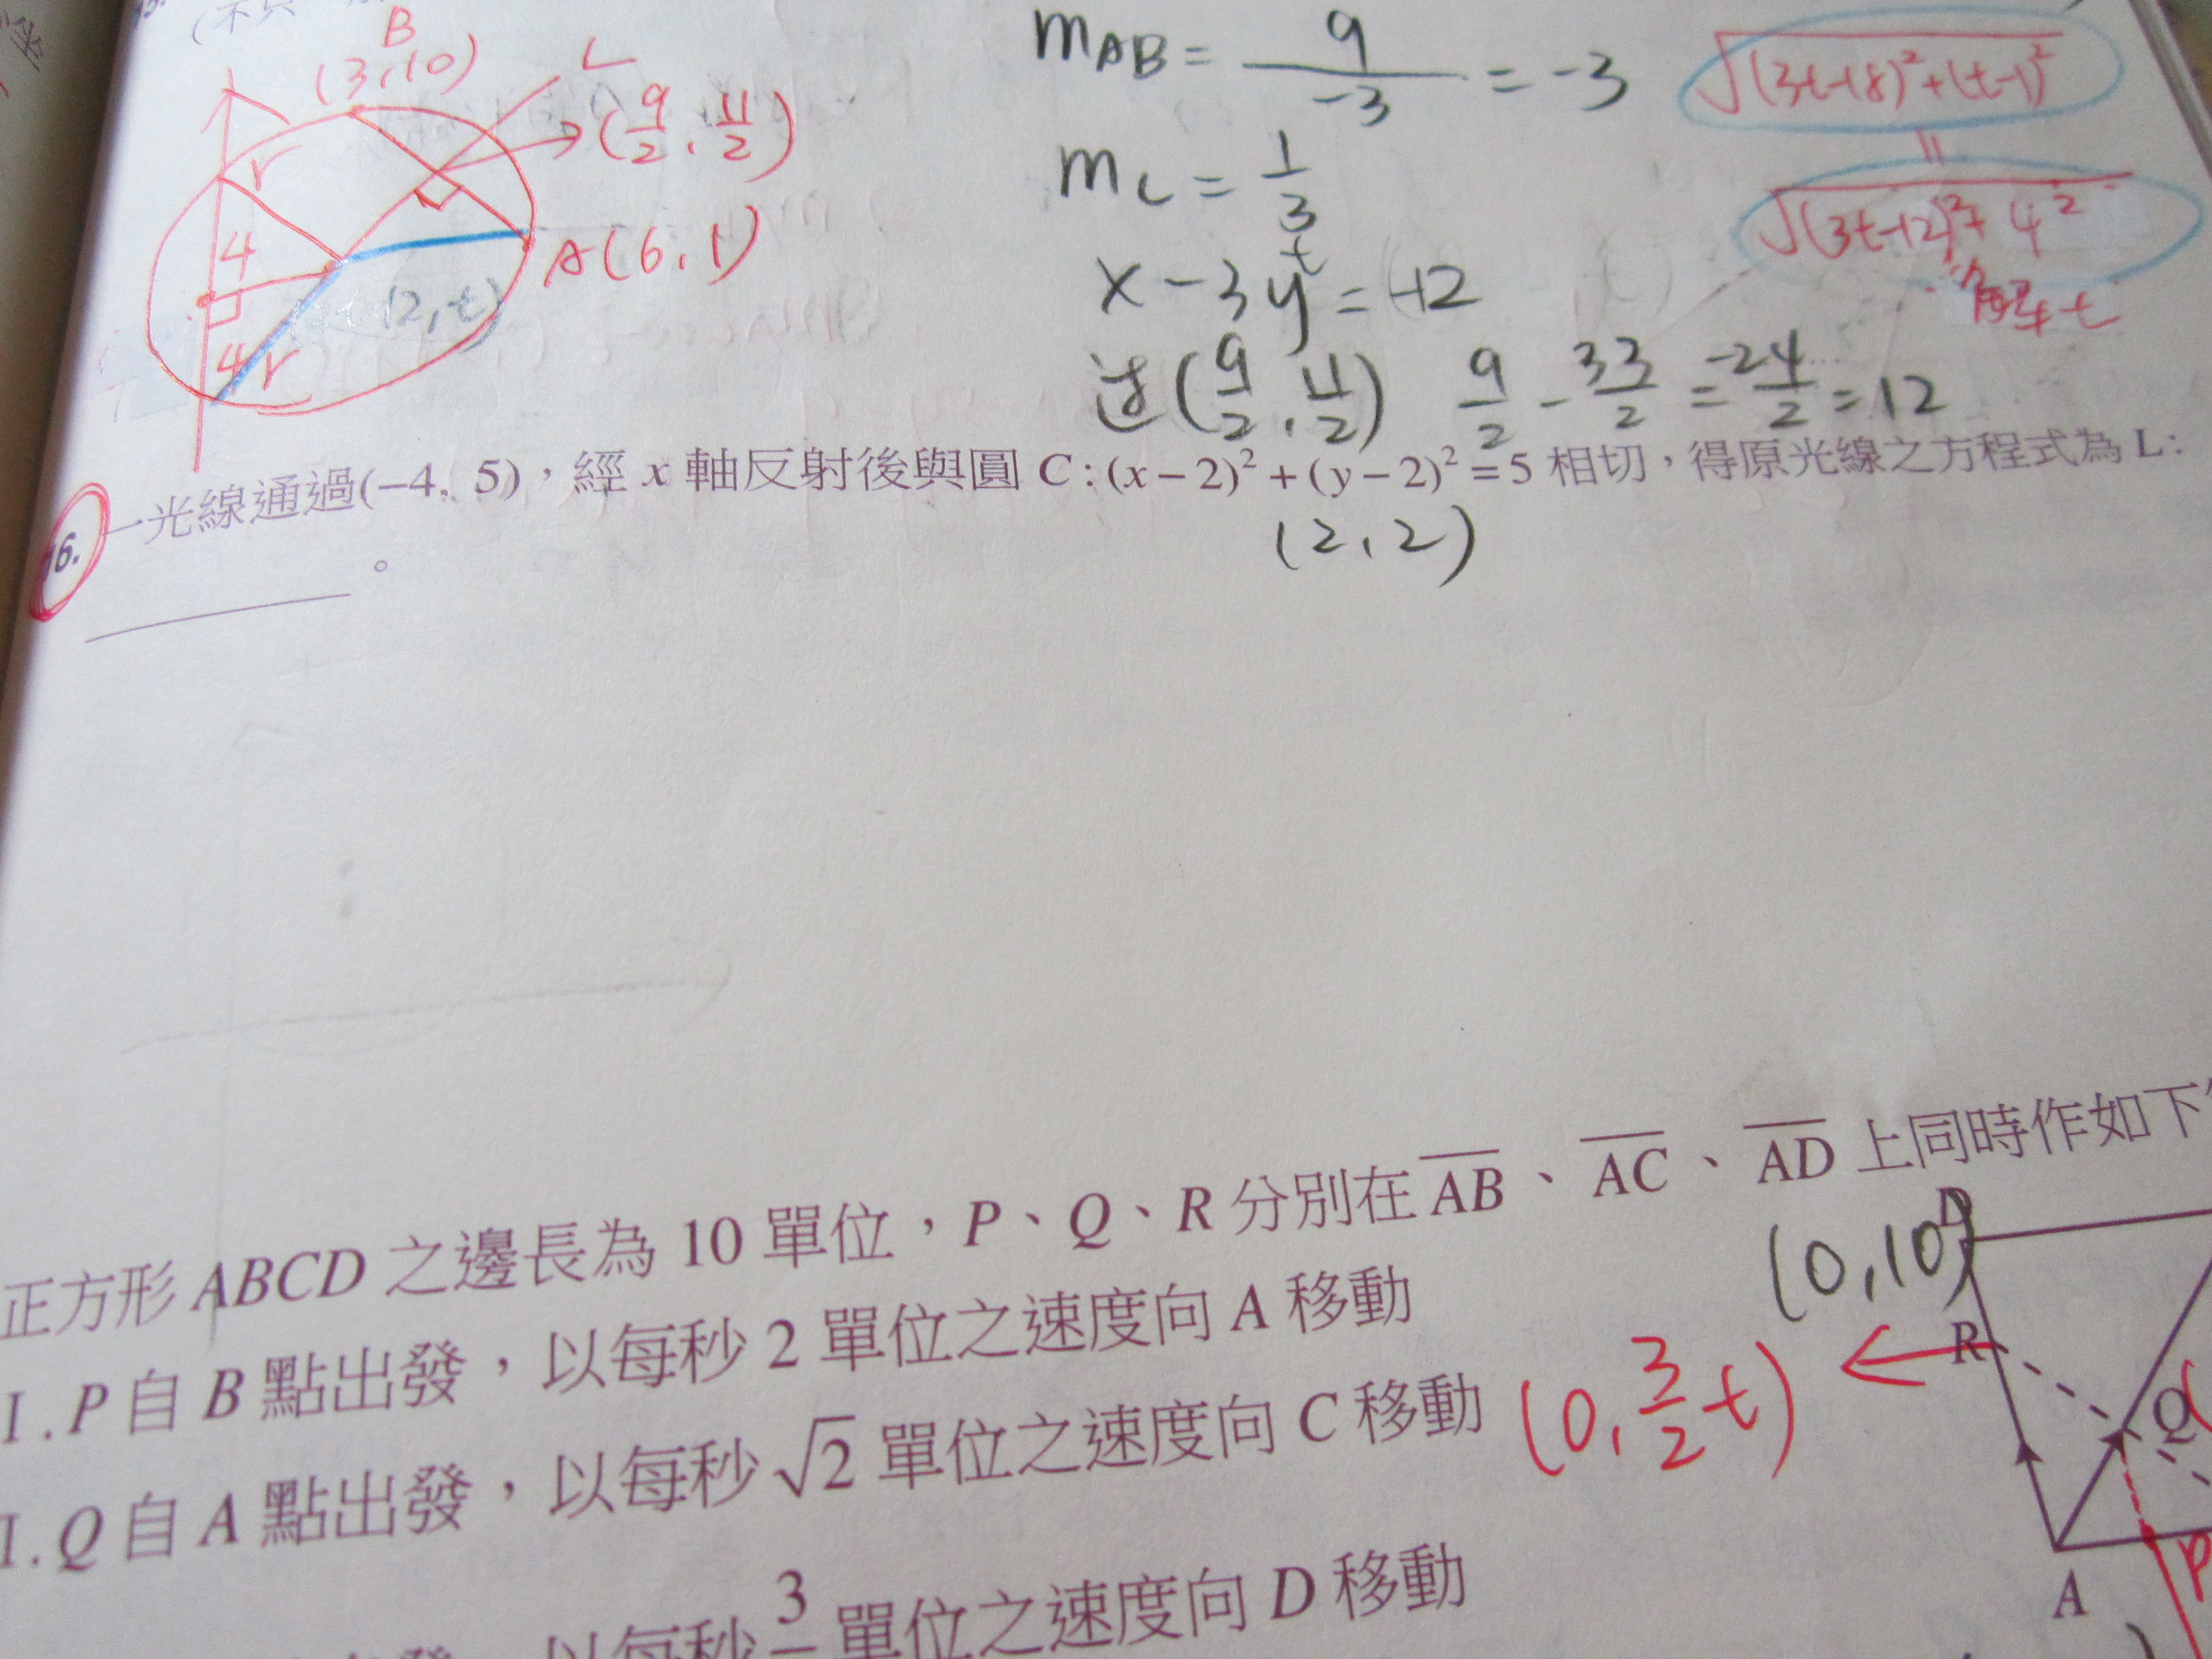 B
(3,10)
L
(9/2, 11/2)
r
4
A(6,1)
12,t)
4
r
m_AB = 9/-3 = -3
m_L = 1/3
t
x-3y=-12
过(9/2, 11/2) 9/2 - 33/2 = -24/2 = 12
√(3t-18)²+(t-1)²
=
√(3t-12)²+4²
解t
16. 一光線通過(−4, 5)，經 x 軸反射後與圓 C : (x − 2)² + (y − 2)² = 5 相切，得原光線之方程式為 L :
。
(2,2)
正方形 ABCD 之邊長為 10 單位，P、Q、R 分別在 AB、AC、AD 上同時作如下
I . P 自 B 點出發，以每秒 2 單位之速度向 A 移動
I . Q 自 A 點出發，以每秒 √2 單位之速度向 C 移動
以每秒 3 單位之速度向 D 移動
D
(0,10)
R
(0, 3/2 t)
Q(
A
P